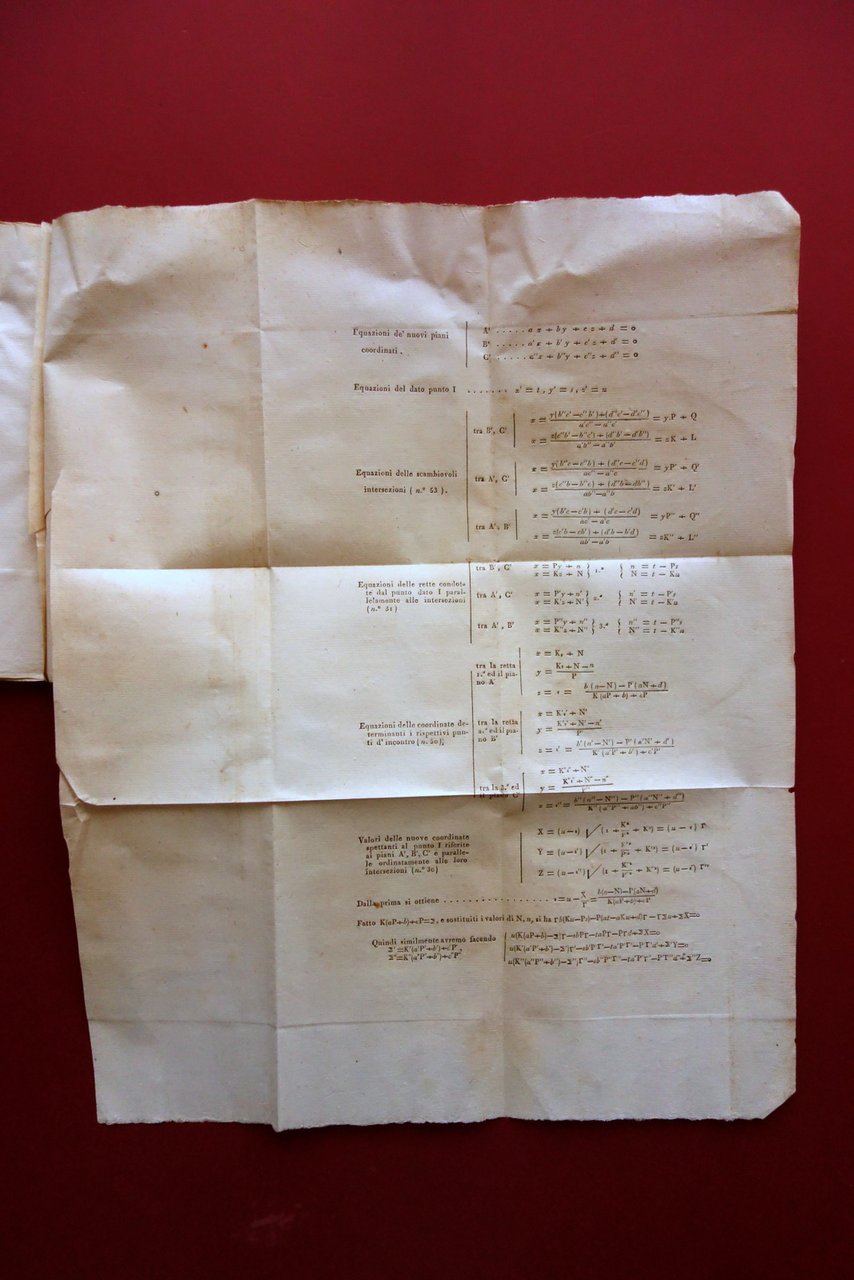 Equazioni de' nuovi piani
coordinati.
A' ..... a x + by + c z + d = o
B' ..... a'x + b' y + c'z + d' = o
C' ..... a''x + b''y + c''z + d'' = o
Equazioni del dato punto I ....... x' = t, y' = s, z' = u
Equazioni delle scambievoli
intersezioni (n.° 53).
tra B', C'
x = y(b''c'−c''b')+(d''c'−d'c'') / a'c''−a''c' = yP + Q
x = z(c''b'−b''c')+(d''b'−d'b'') / a'b''−a''b' = zK + L
tra A', C'
x = y(b''c−c''b)+(d''c−c''d) / ac''−a''c = yP' + Q'
x = z(c''b−b''c)+(d''b−db'') / ab''−a''b = zK' + L'
tra A', B'
x = y(b'c−c'b)+(d'c−c'd) / ac'−a'c = yP'' + Q''
x = z(c'b−cb')+(d'b−b'd) / ab'−a'b = zK'' + L''
Equazioni delle rette condot-
te dal punto dato I paral-
lelamente alle intersezioni
(n.° 51)
tra B', C'
x = Py + n } 1.ª { n = t − Ps
x = Kz + N } { N = t − Ku
tra A', C'
x = P'y + n' } 2.ª { n' = t − P's
x = K'z + N' } { N' = t − K'u
tra A', B'
x = P''y + n'' } 3.ª { n'' = t − P''s
x = K''z + N'' } { N'' = t − K''u
Equazioni delle coordinate de-
terminanti i rispettivi pun-
ti d' incontro (n. 50),
tra la retta
1.ª ed il pia-
no A'
x = Kε + N
y = Kε + N − n / P
z = ε = b (n−N) − P (aN+d) / K (aP + b) + cP
tra la retta
2.ª ed il pia-
no B'
x = K'ε' + N'
y = K'ε' + N' − n' / P'
z = ε' = b'(n'−N') − P'(a'N' + d') / K'(a'P' + b') + c'P'
tra la 3.ª ed
il piano C'
x = K''ε'' + N''
y = K''ε'' + N'' − n'' / P''
z = ε'' = b''(n''−N'') − P''(a''N'' + d'') / K''(a''P'' + ab'') + c''P''
Valori delle nuove coordinate
spettanti al punto I riferite
ai piani A', B', C' e paralle-
le ordinatamente alle loro
intersezioni (n.° 30)
X = (u−ε) √(1 + K² / P² + K²) = (u − ε) Γ
Y = (u−ε') √(1 + K'² / P'² + K'²) = (u − ε') Γ'
Z = (u−ε'') √(1 + K''² / P''² + K''²) = (u − ε'') Γ''
Dalla prima si ottiene .................... ε = u − X / Γ = b(n−N)−P(aN+d) / K(aP+b)+cP
Fatto K(aP+b)+cP=Σ, e sostituiti i valori di N, n, si ha Γb(Ku−Ps)−P(at−aKu+d)Γ−ΓΣu+ΣX=o
Quindi similmente avremo facendo
Σ'=K'(a'P'+b')+c'P',
Σ''=K''(a''P''+b'')+c''P''
u(K(aP+b)−Σ)Γ−sbPΓ−taPΓ−PΓd+ΣX=o
u(K'(a'P'+b')−Σ')Γ'−sb'P'Γ'−ta'P'Γ'−P'Γ'd'+Σ'Y=o
u(K''(a''P''+b'')−Σ'')Γ''−sb''P''Γ''−ta''P''Γ''−P''Γ''d''+Σ''Z=o